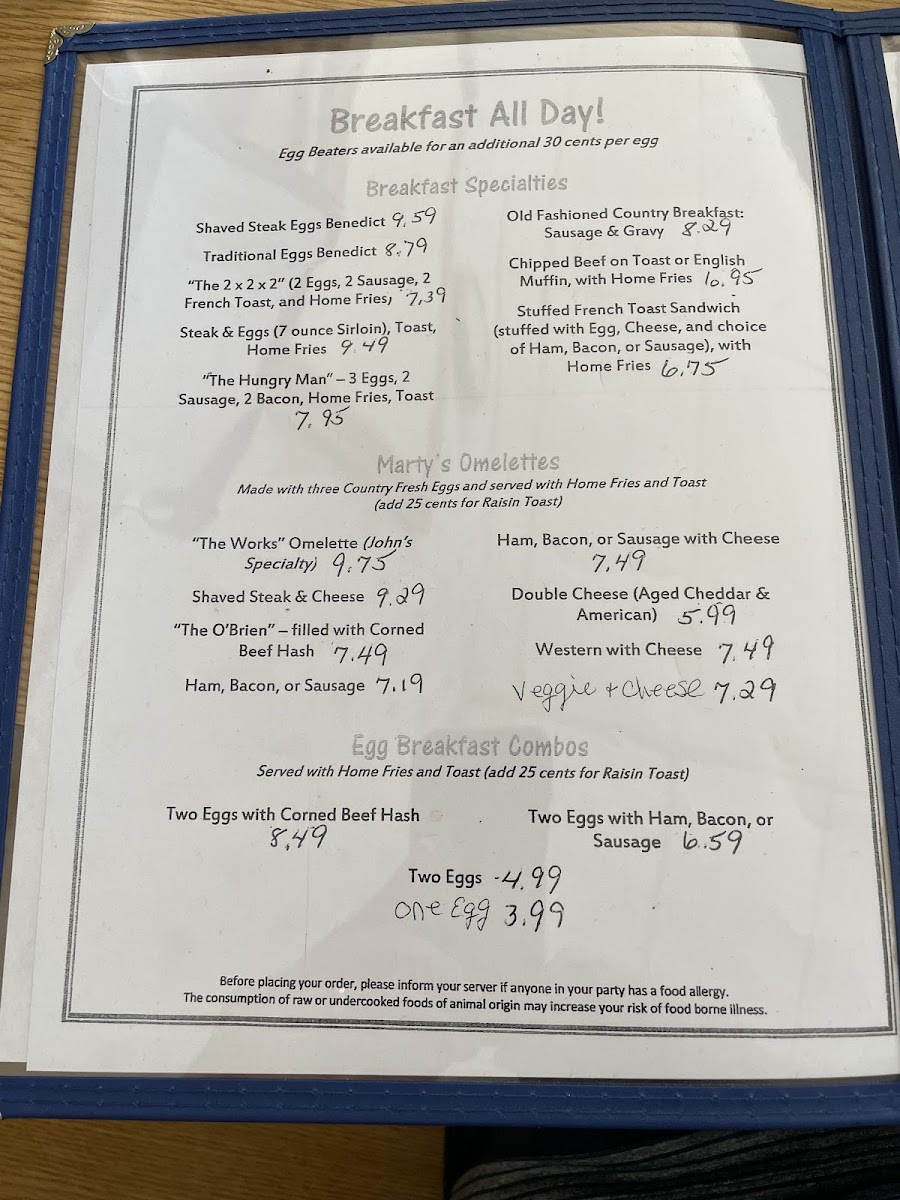 Breakfast All Day!
Egg Beaters available for an additional 30 cents per egg
Breakfast Specialties
Shaved Steak Eggs Benedict 9.59
Traditional Eggs Benedict 8.79
"The 2 x 2 x 2" (2 Eggs, 2 Sausage, 2
French Toast, and Home Fries) 7,39
Steak & Eggs (7 ounce Sirloin), Toast,
Home Fries 9.49
"The Hungry Man" – 3 Eggs, 2
Sausage, 2 Bacon, Home Fries, Toast
7.95
Old Fashioned Country Breakfast:
Sausage & Gravy 8.29
Chipped Beef on Toast or English
Muffin, with Home Fries 6.95
Stuffed French Toast Sandwich
(stuffed with Egg, Cheese, and choice
of Ham, Bacon, or Sausage), with
Home Fries 6.75
Marty's Omelettes
Made with three Country Fresh Eggs and served with Home Fries and Toast
(add 25 cents for Raisin Toast)
"The Works" Omelette (John's
Specialty) 9.75
Shaved Steak & Cheese 9.29
"The O'Brien" – filled with Corned
Beef Hash 7.49
Ham, Bacon, or Sausage 7.19
Ham, Bacon, or Sausage with Cheese
7.49
Double Cheese (Aged Cheddar &
American) 5.99
Western with Cheese 7.49
Veggie + Cheese 7.29
Egg Breakfast Combos
Served with Home Fries and Toast (add 25 cents for Raisin Toast)
Two Eggs with Corned Beef Hash
8.49
Two Eggs with Ham, Bacon, or
Sausage 6.59
Two Eggs - 4.99
One Egg 3.99
Before placing your order, please inform your server if anyone in your party has a food allergy.
The consumption of raw or undercooked foods of animal origin may increase your risk of food borne illness.